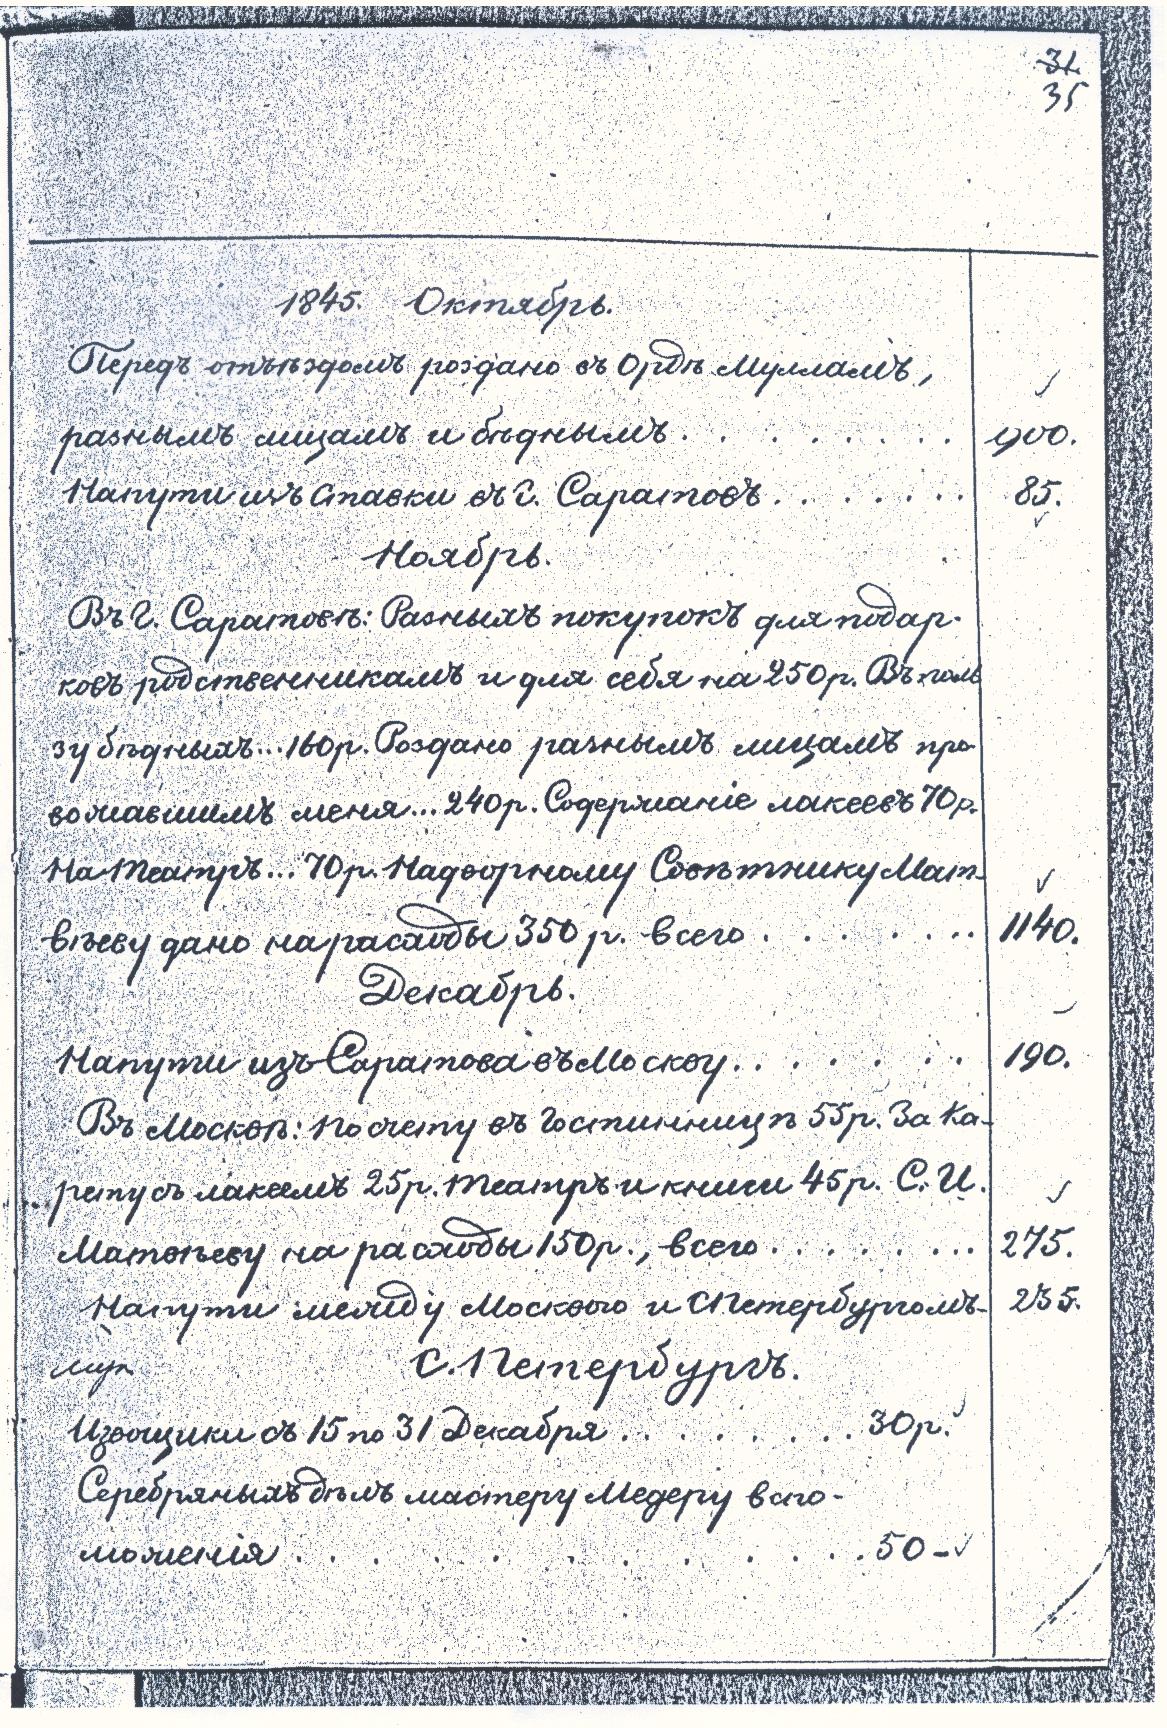 31.
35
1845. Октябрь.
Передъ отъѣздомъ роздано въ Ордѣ Мулламъ, ✓
разнымъ лицамъ и бѣднымъ . . . . . . . . 900.
Напути изъ Ставки въ г. Саратовъ . . . . . . . 85.
✓
Ноябрь.
Въ г. Саратовѣ: Разныхъ покупокъ для подар-
ковъ родственникамъ и для себя на 250 р. Въ поль
зу бѣдныхъ... 160 р. Роздано разнымъ лицамъ про-
вожавшимъ меня... 240 р. Содержаніе лакеевъ 70 р.
На театръ... 70 р. Надворному Совѣтнику Мат- ✓
вѣеву дано на расходы 350 р. всего . . . . . . . 1140.
Декабрь.
Напути изъ Саратова въ Москву . . . . . . 190.
Въ Москвѣ: По счету въ гостинницѣ 55 р. За ка-
рету съ лакеемъ 25 р. театръ и книги 45 р. С. И. ✓
Матвѣеву на расходы 150 р., всего . . . . . . . 275.
Напути между Москвою и СПетербургомъ- 235.
С. Петербургъ.
Извощики съ 15 по 31 Декабря . . . . . . . . 30 р. ✓
Серебряныхъ дѣлъ мастеру Медеру вспо-
моженія . . . . . . . . . . . 50 - ✓